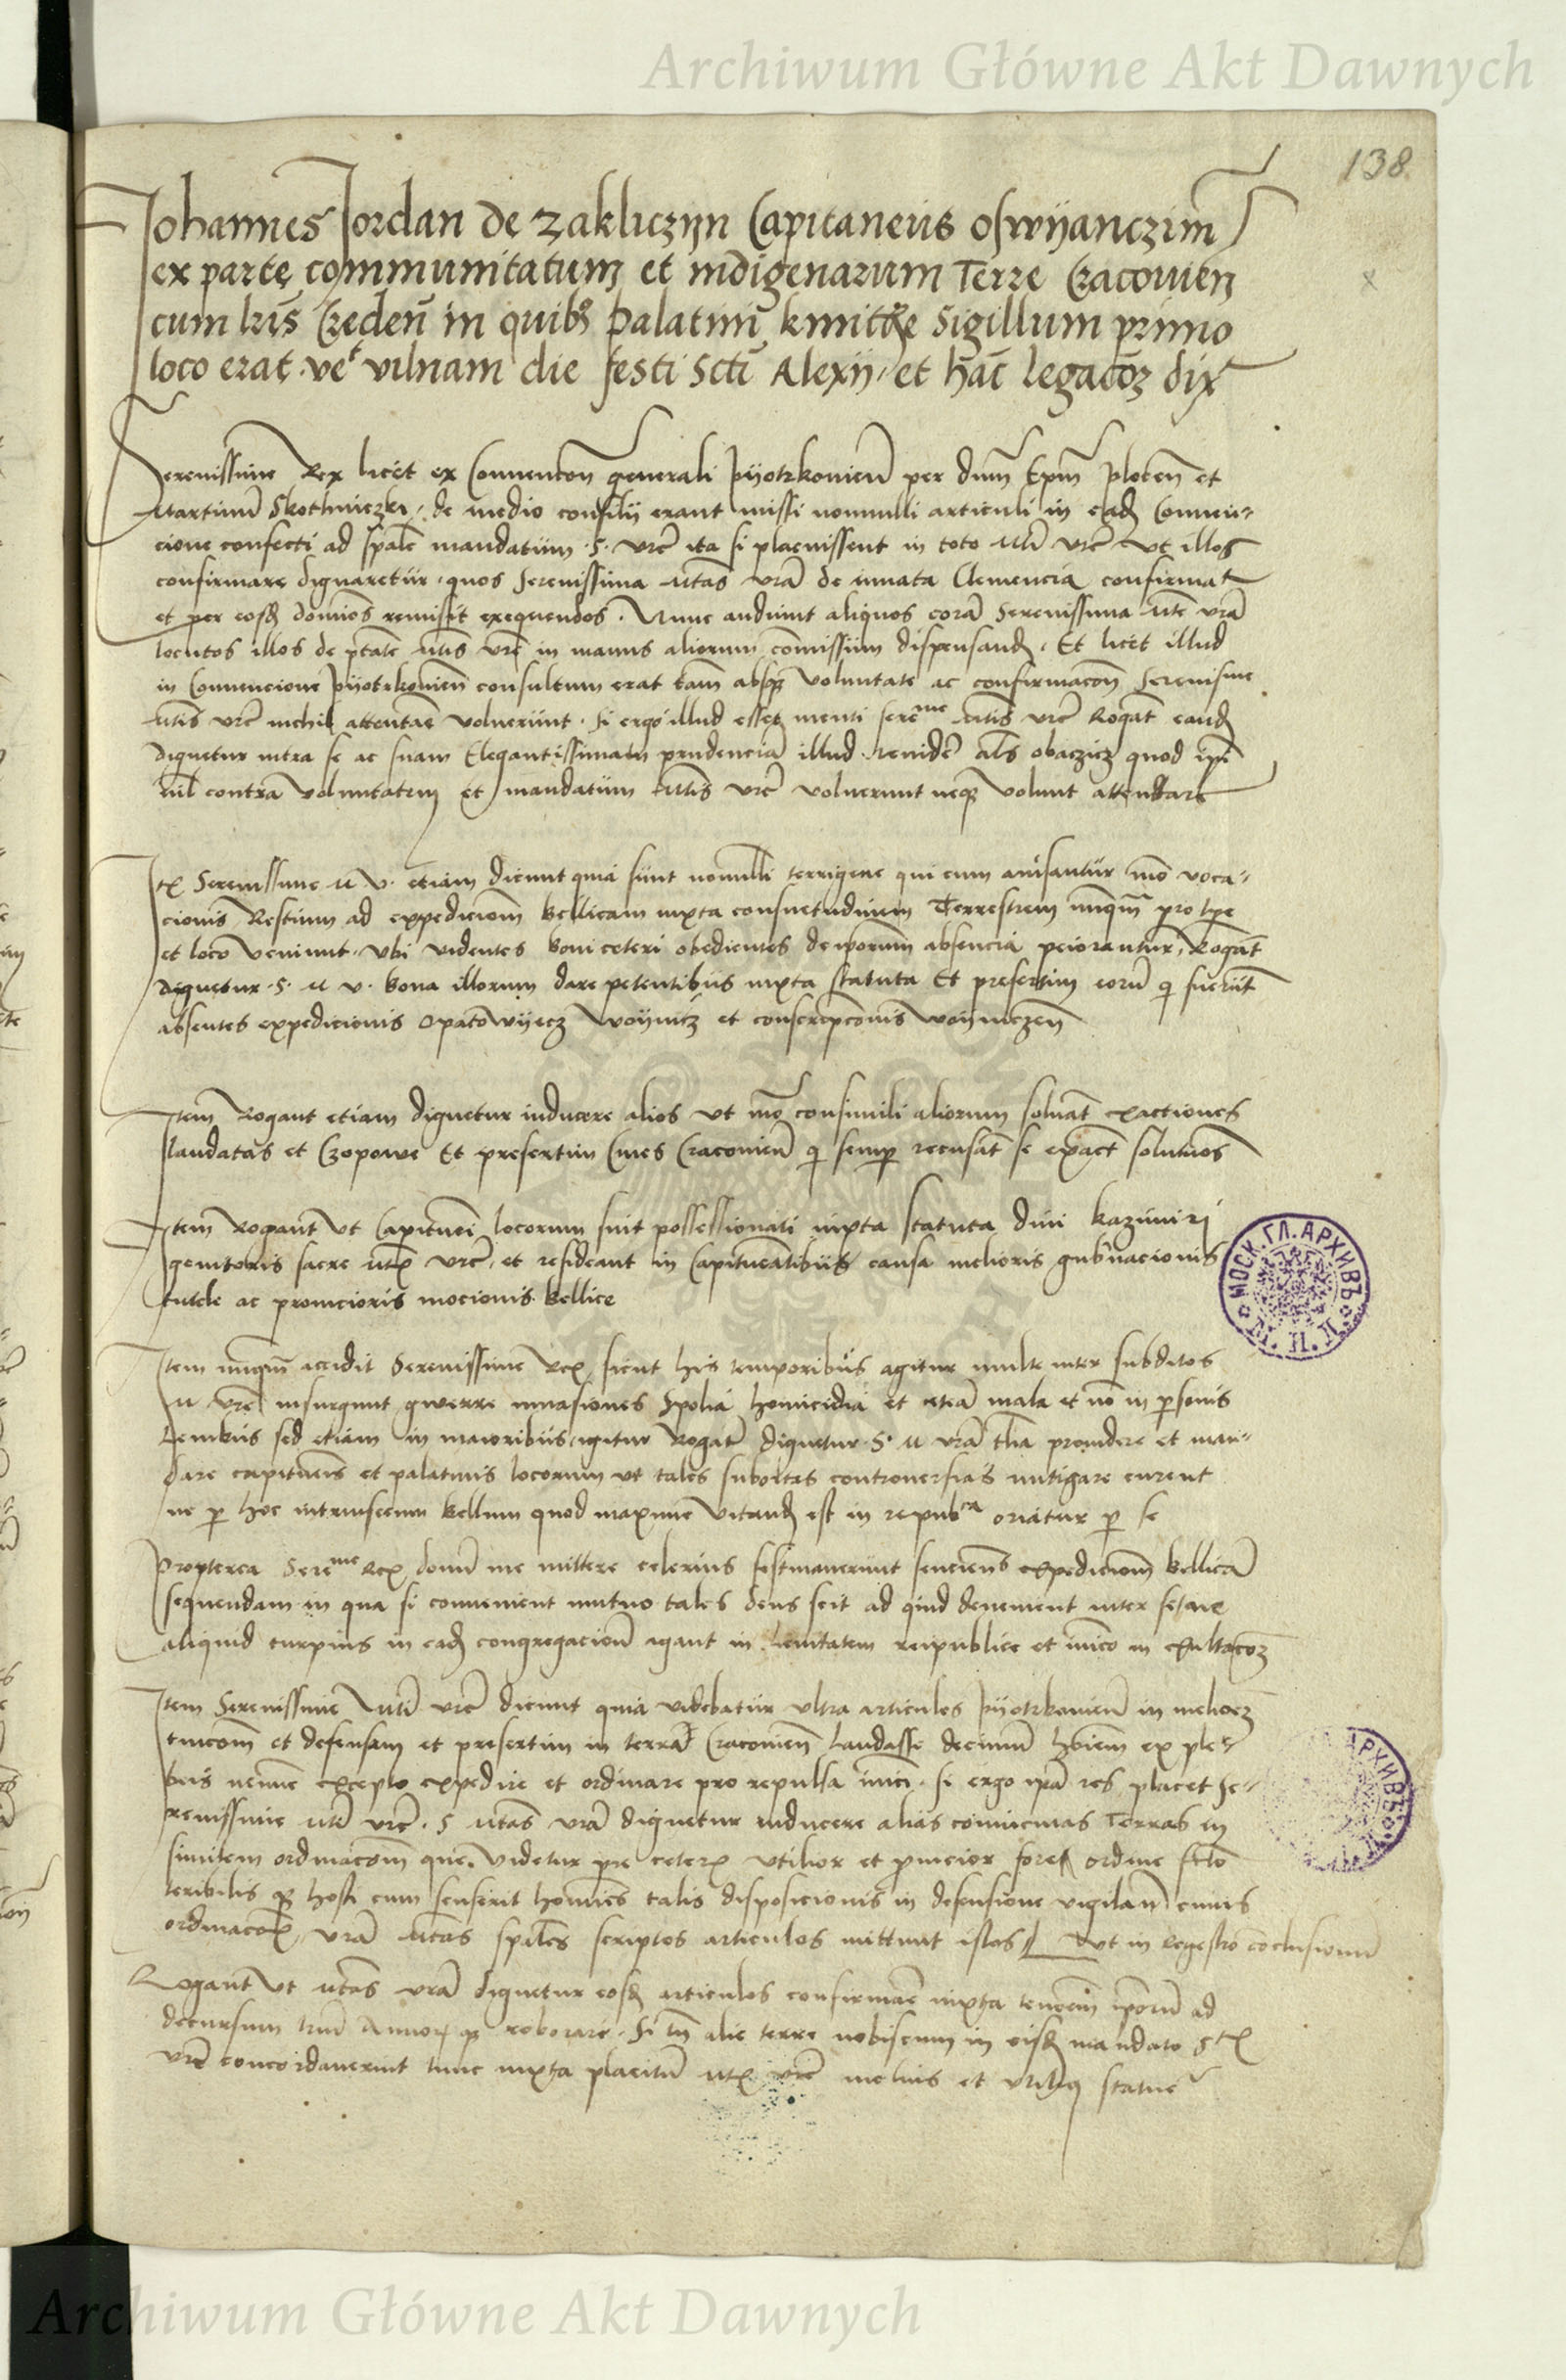 Archiwum Główne Akt Dawnych
138.
Johannes Jordan de Zakliczyn Capitaneus Oswyanczim̃
ex parte communitatum et indigenarum Terre Cracovien̄
cum lr̃is Creden̄ in quib9 Palatini Kmithe Sigillum primo
loco erat. veᵗ vilnam die festi Sct̃i Alexij, et hãc legacõꝫ dix̃
Serenissime Rex licet ex Convencõn generali Pyotrkovien̄ per dnm̃ Epm̃ Plocen̄ et
Martinũ Skothniczki, de medio consilij erant missi nonnulli articuli in eadꝫ Conven-
cione confecti ad spãle mandatum .S. vrẽ ita si placuissent in toto Mti vrẽ ut illos
confirmare dignaretur, quos Serenissima Mtas vrã de innata Clemencia confirmat
et per eosdꝫ dominos remisit exequendos. Nunc audiunt aliquos corã Serenissima Mte vrã
locutos illos de ptãte Mtis vrẽ in manus aliorum com̃issum dispensandꝫ. Et licet illud
in Convencione Pyotrkovien̄ consultum erat tam̃ absqꝫ voluntate ac confirmacõn̄ Serenisime
Mtis vrẽ nichil attentare voluerunt. Si ergo illud esset menti sereᵐᵉ Mtis vrẽ Rogãt eandꝫ
dignetur intra se ac suam Elegantissimam prudenciã illud revidere al̃s obaczicz quod ip̃i
nil contra voluntatem et mandatum Mtis vrẽ voluerunt neqꝫ volunt attentare
Itꝫ Serenissime M V. etiam dicunt quia sunt nonnulli terrigene qui cum avisantur mõ voca-
cionis Restium ad expedicionem bellicam iuxta consuetudinem Terrestrem nunqᵐ pro tp̃e
et loco veniunt. Ubi videntes boni ceteri obedientes de ip̃orum absencia peiorantur, Rogãt
dignetur .S. M V. bona illorum dare petentibus iuxta statuta Et presertim eorũ qi fuerũt
absentes expedicionis Opatowyecz Woynicz et conscripcõnis Woyniczen̄
Item Rogant etiam dignetur inducere alios ut mõ consimili aliorum solvãt exactiones
laudatas et Czopowe Et presertim Cives Cracovien̄ qi semꝑ recusãt se exact̃ soluturos
Item Rogant ut Capituei locorum sint possessionati iuxta statuta divi Kazimiri
genitoris sacre Mtꝫ vrẽ, et resideant in Capitueatibus causa melioris gubnacionis
tutele ac promcioris mocionis bellice
Item nunqᵐ accidit Serenissime Rex sicut his temporibus agitur multe inter subditos
M vrẽ insurgunt gwerre invasiones Spolia homicidia et cetera mala et nõ in personis
levibus sed etiam in maioribus, igitur Rogãt dignetur .S. M vrã t̃lia providere et man-
dare capitueis et palatinis locorum ut tales subortas controversias mitigare curent
ne ꝑ hoc intrinsecum bellum quod maxime vitandꝫ est in repubᶜᵃ oriatur ꝑ se
Propterea Sereᵐᵉ Rex domĩ me mittere celerius festinaverunt sencientes expedicionem bellicã
sequendam in qua si convenient mutuo tales deus scit ad quid devenient inter se, ne
aliquid turpius in eadꝫ congregacione agant in levitatem reipublice et inimico in exultacõꝫ
Item Serenissime Mti vrẽ dicunt quia videbatur ultra articulos Pyotrkovien̄ in meliorꝫ
tuicõem et defensam et presertim in terra Cracovien̄ laudasse decimum hõiem ex ple-
beis nemine excepto expedire et ordinare pro repulsa inimici. Si ergo ip̃a res placet Se-
renissime Mti vrẽ. S Mtas vrã dignetur inducere alias convicinas Terras in
similem ordinacõem que videtur pre ceteris utilior et promcior fore ordine scõ
teribilis qꝫ hosti cum senserit homines talis disposicionis in defensione vigilan̄ cuius
ordinacõꝫ, vrã Mtas spãles scriptos articulos mittunt istos Ut in Regestro conclusionum
Rogant ut Mtas vrã dignetur eosdꝫ articulos confirmare iuxta tenorem ip̃orũ ad
decursum triũ Annoꝝ qꝫ roborare. Si tñ alie terre nobiscum in eisdꝫ mandato Sᵗꝫ
vrẽ concordaverint tunc iuxta placitũ Mtꝫ vrẽ melius et utilius statue
МОСК. ГЛ. АРХИВЪ
АРХИВЪ
Archiwum Główne Akt Dawnych